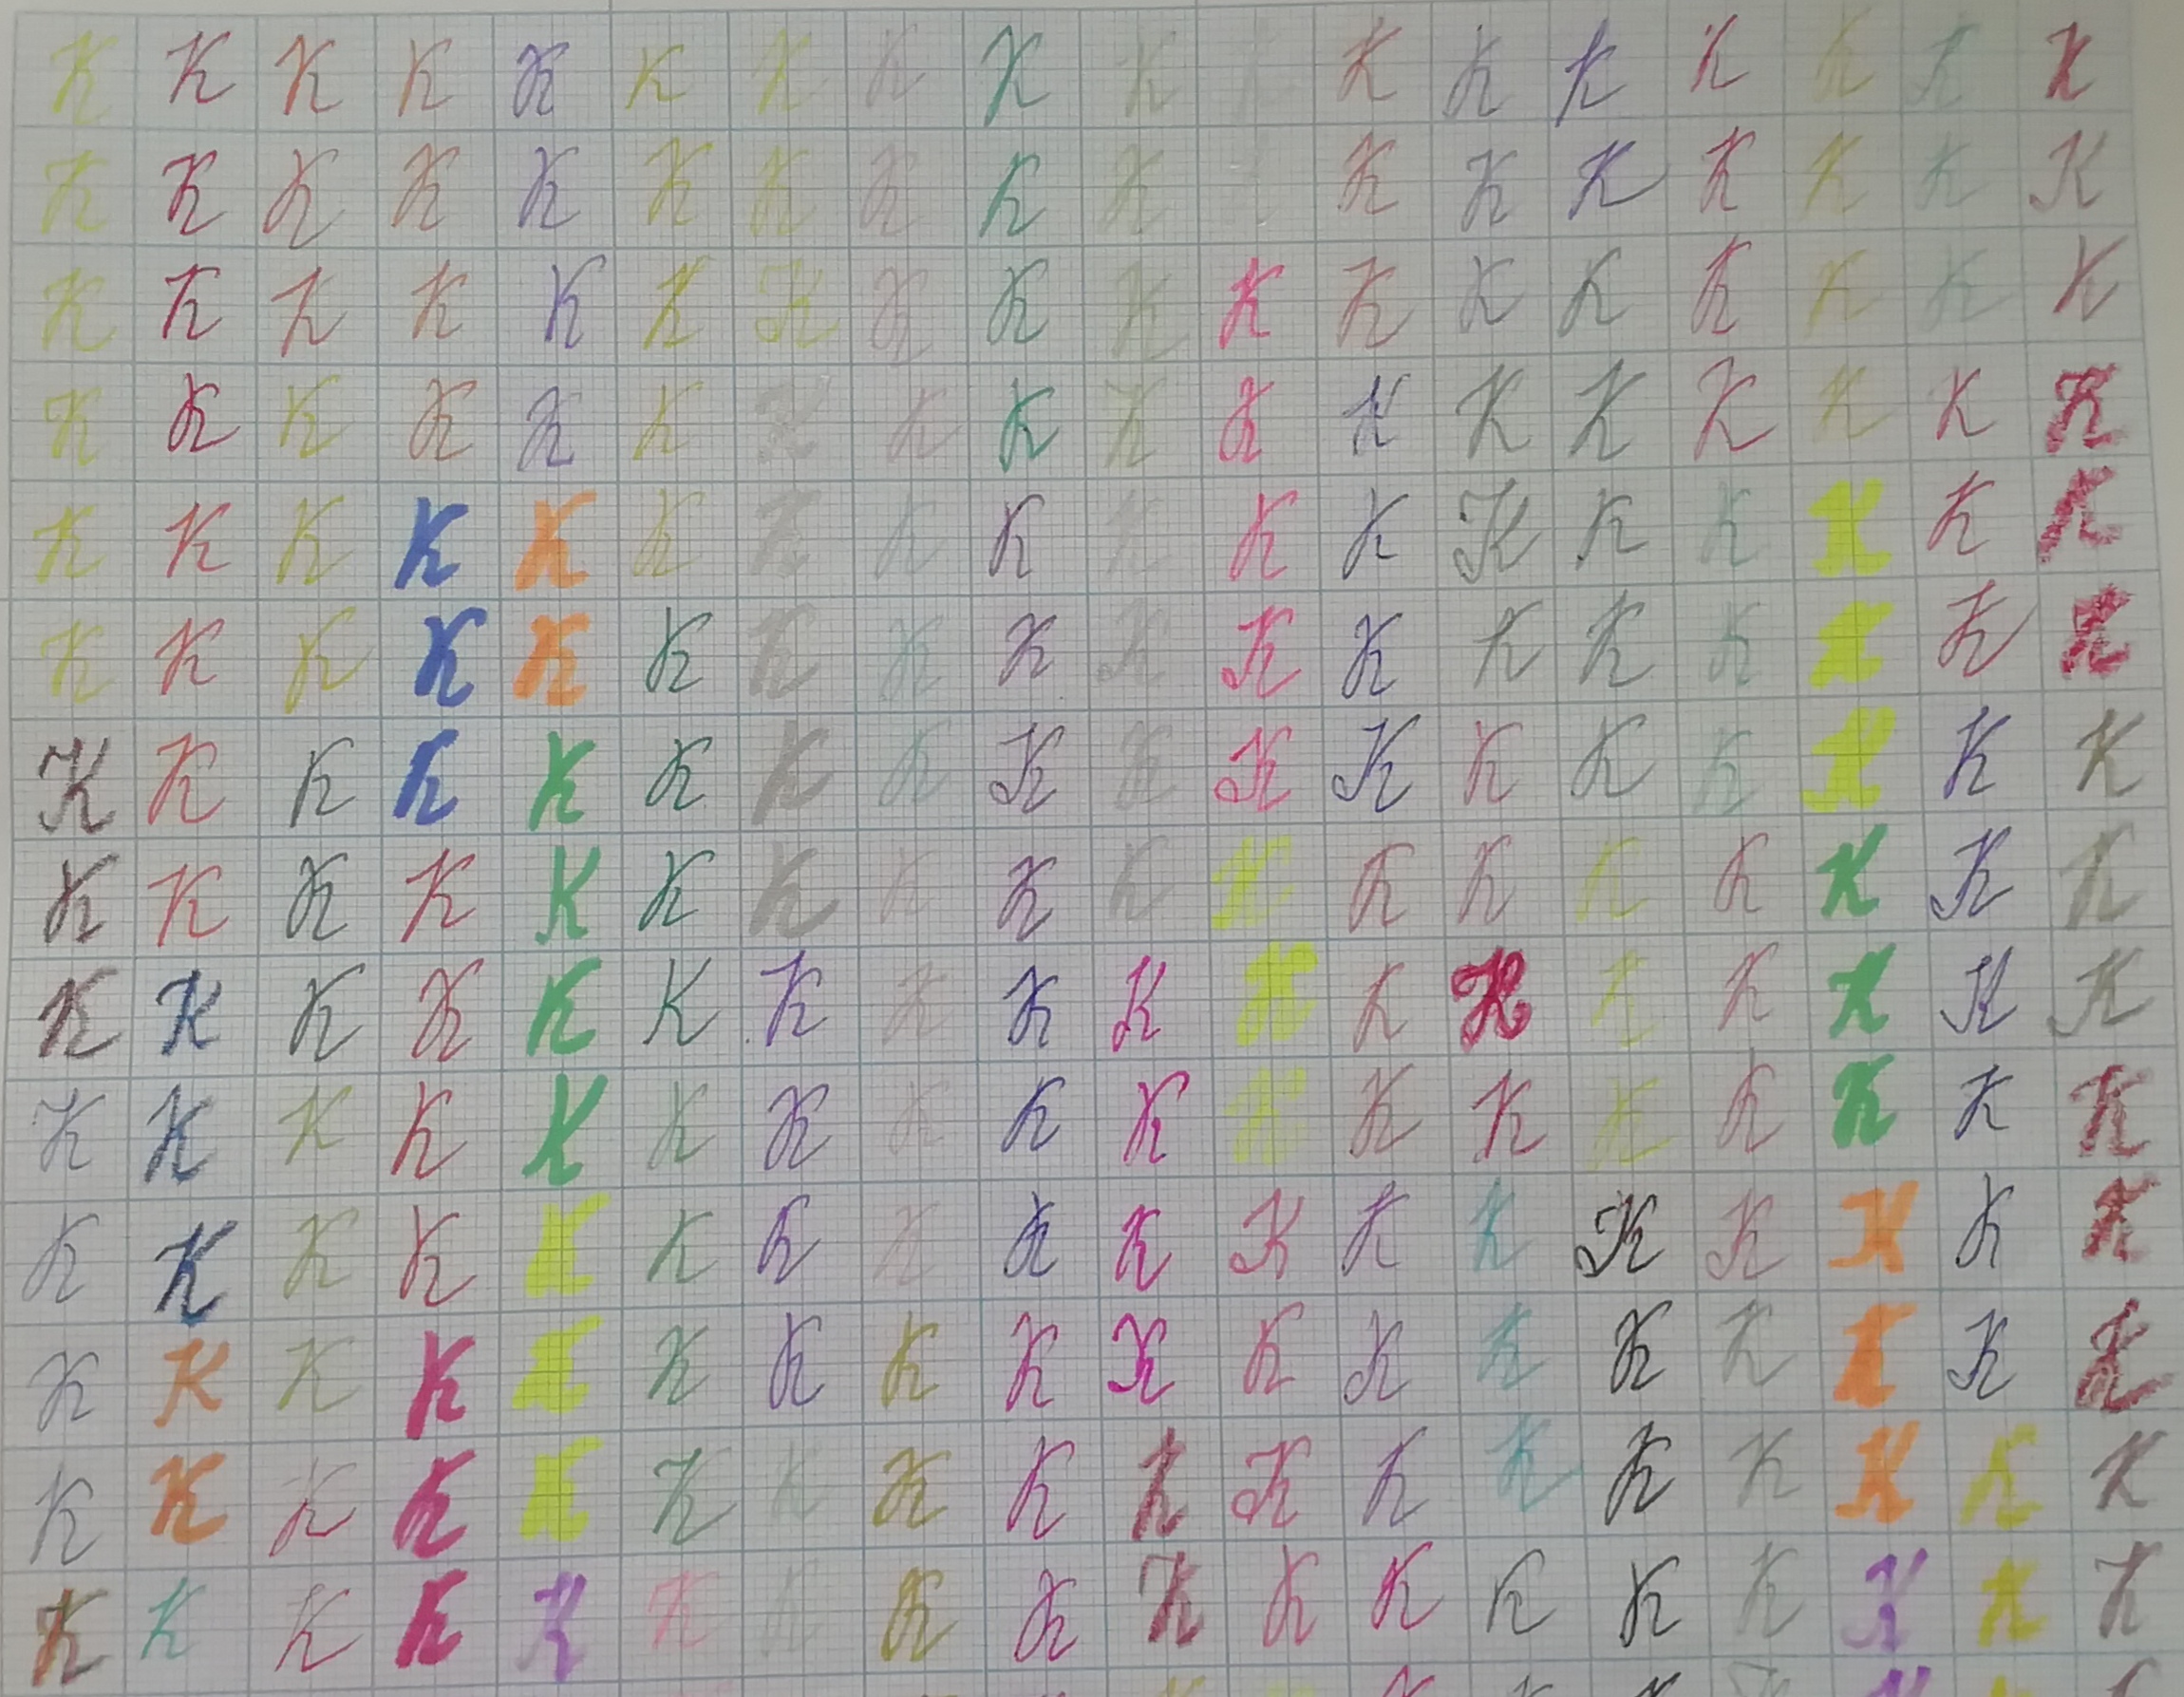 K K K K K K K K K K K K K K K K K
K K K K K K K K K K K K K K K K K
K K K K K K K K K K K K K K K K K K
K K K K K K K K K K K K K K K K K K
K K K K K K K K K K K K K K K K K K
K K K K K K K K K K K K K K K K K K
K K K K K K K K K K K K K K K K K K
K K K K K K K K K K K K K K K K K K
K K K K K K K K K K K K K K K K K K
K K K K K K K K K K K K K K K K K K
K K K K K K K K K K K K K K K K K K
K K K K K K K K K K K K K K K K K K
K K K K K K K K K K K K K K K K K K
K K K K K K K K K K K K K K K K K K